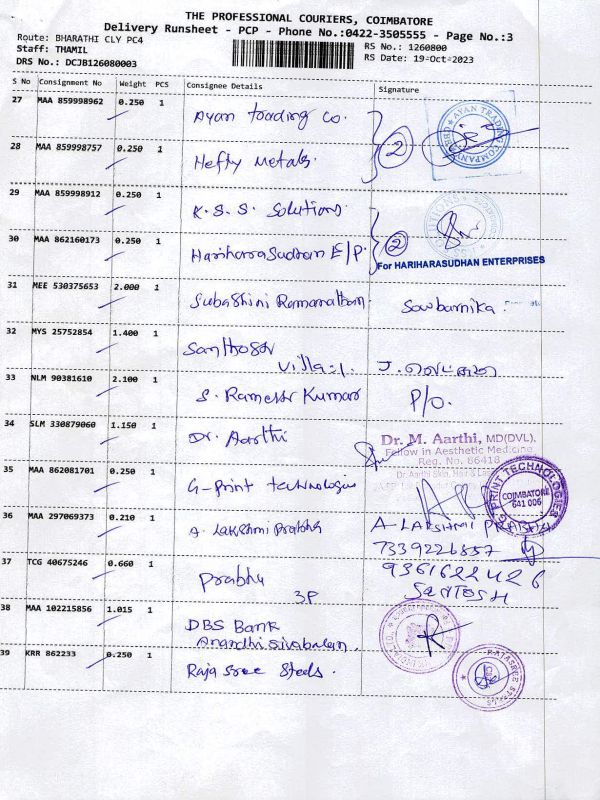 THE PROFESSIONAL COURIERS, COIMBATORE
Delivery Runsheet - PCP - Phone No.:0422-3505555 - Page No.:3
Route: BHARATHI CLY PC4
RS No.: 1260800
Staff: THAMIL
RS Date: 19-Oct-2023
DRS No.: DCJB126080003
S No Consignment No Weight PCS Consignee Details Signature
27 MAA 859998962 0.250 1 Ayan trading Co.
AYAN TRADING COMPANY
28 MAA 859998757 0.250 1 Hefty Metals.
2
29 MAA 859998912 0.250 1 K.S.S. Solutions
30 MAA 862160173 0.250 1 Hariharasudhan E/P.
2
For HARIHARASUDHAN ENTERPRISES
31 MEE 530375653 2.000 1 Subashini Ramanathan. Sowbarnika.
32 MYS 25752854 1.400 1 Santhosh
Villa:1. J.
33 NLM 90381610 2.100 1 S. Ramesh Kumar P/O.
34 SLM 330879060 1.150 1 Dr. Aarthi
Dr. M. Aarthi, MD(DVL).
Fellow in Aesthetic Medicine
Reg. No. 86418
35 MAA 862081701 0.250 1 G-Print technologies
G-PRINT TECHNOLOGIES
COIMBATORE
641 006
36 MAA 297069373 0.210 1 A. Lakshmi Prabha A-LAKSHMI PRABHA
7339226857
37 TCG 40675246 0.660 1 Prabhu 9361622426
3P SANTOSH
38 MAA 102215856 1.015 1 DBS Bank
Anandhi Sivabalan.
39 KRR 862233 0.250 1 Raja Sree Steels.
RAJASREE STEELS
CBE